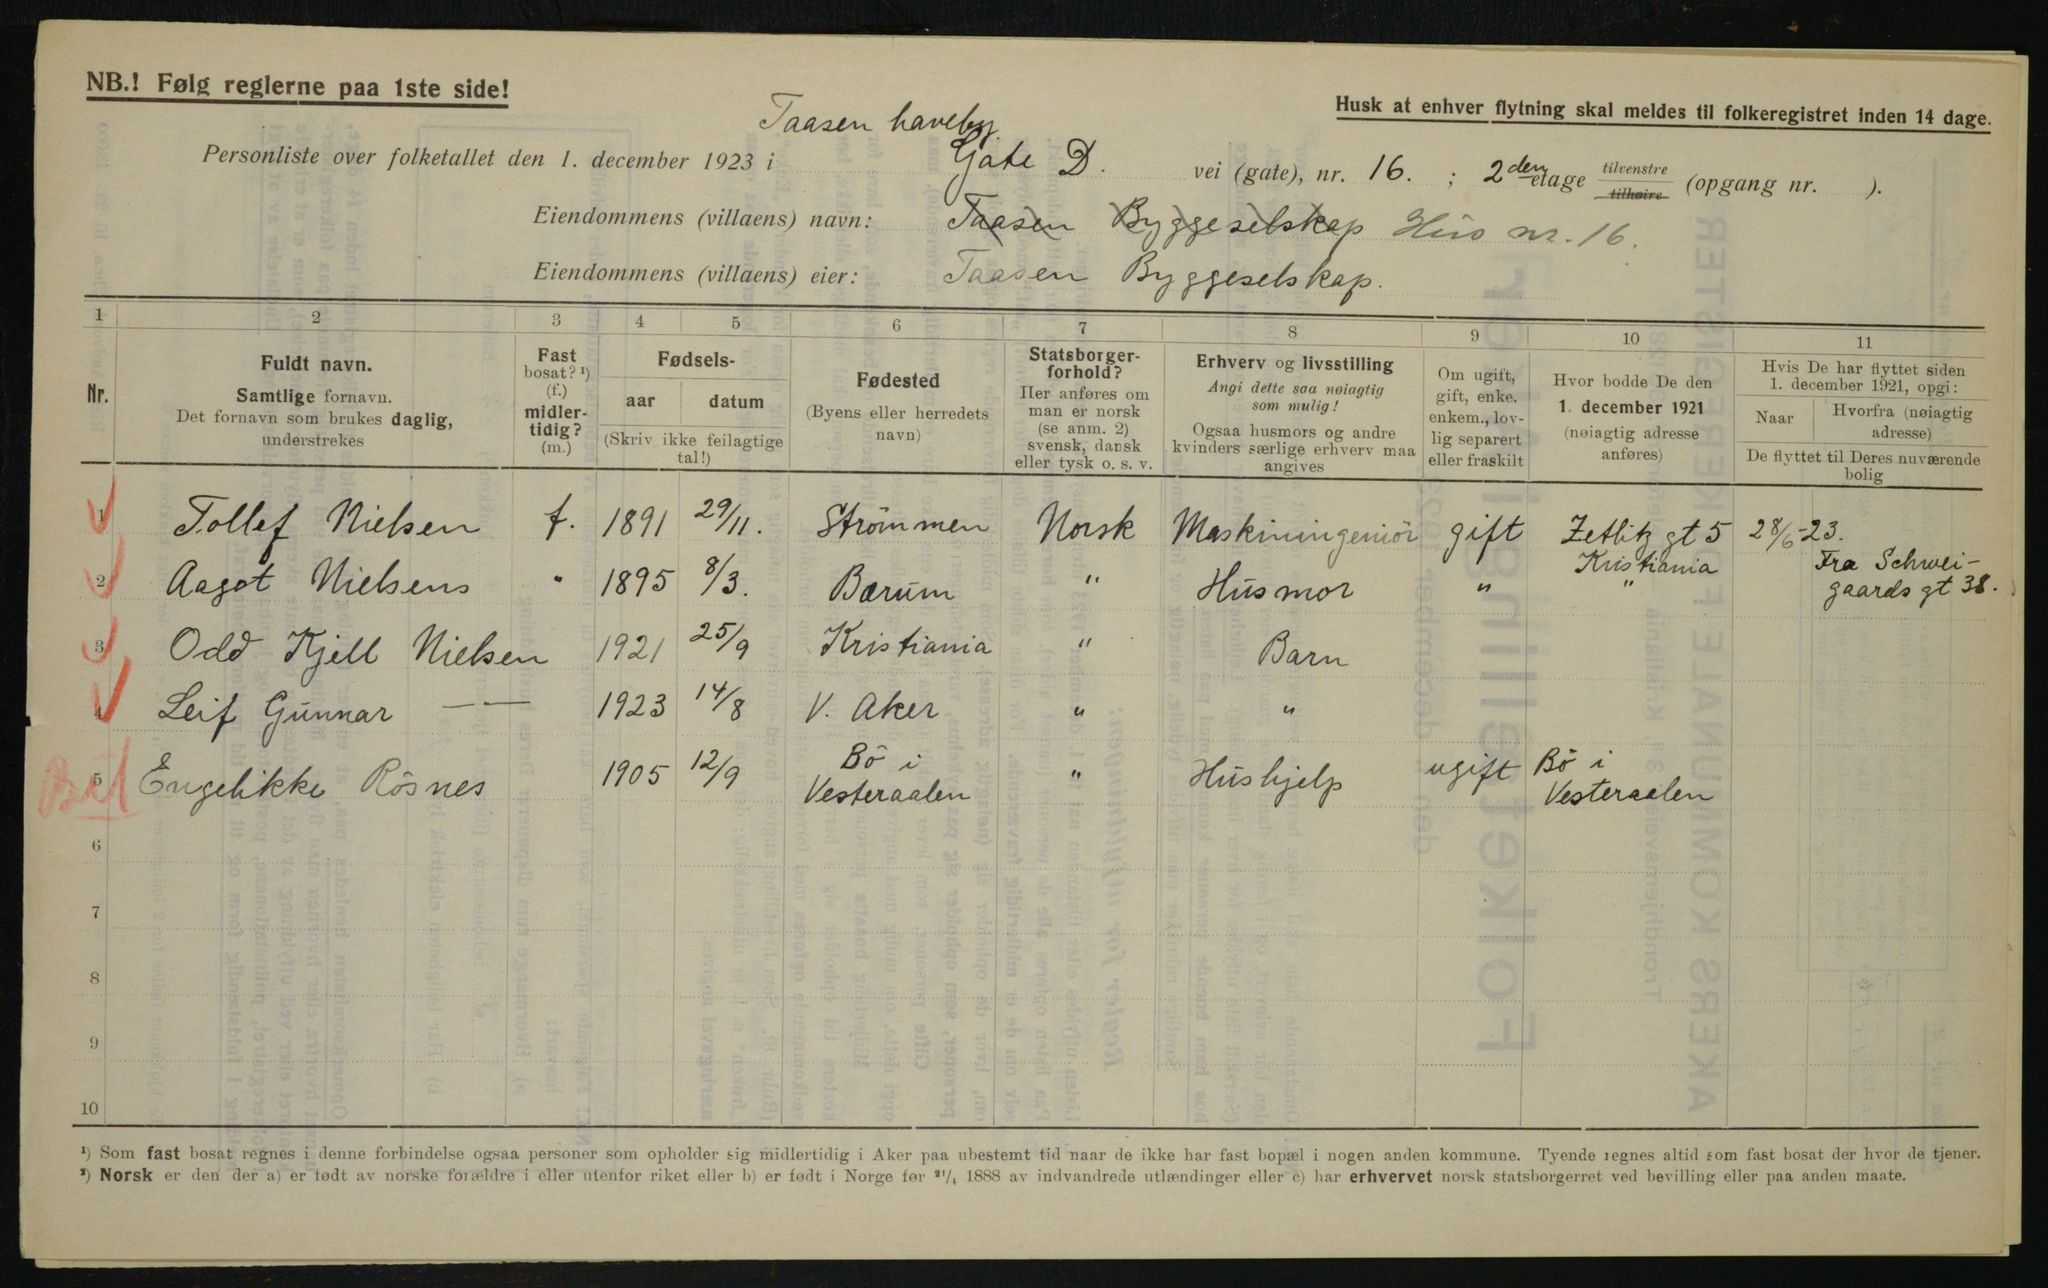 NB.! Følg reglerne paa 1ste side!
Husk at enhver flytning skal meldes til folkeregistret inden 14 dage.
Taasen haveby.
Personliste over folketallet den 1. december 1923 i Gate D. vei (gate), nr. 16. ; 2den etage tilvenstre tilhøire (opgang nr. ).
Eiendommens (villaens) navn: Taasen Byggeselskap Hus nr. 16.
Eiendommens (villaens) eier: Taasen Byggeselskap.
1 2 3 4 5 6 7 8 9 10 11
Nr.
Fuldt navn.
Samtlige fornavn.
Det fornavn som brukes daglig,
understrekes
Fast
bosat? ¹)
(f.)
midler-
tidig?
(m.)
Fødsels-
aar datum
(Skriv ikke feilagtige
tal!)
Fødested
(Byens eller herredets
navn)
Statsborger-
forhold?
Her anføres om
man er norsk
(se anm. 2)
svensk, dansk
eller tysk o. s. v.
Erhverv og livsstilling
Angi dette saa nøiagtig
som mulig!
Ogsaa husmors og andre
kvinders særlige erhverv maa
angives
Om ugift,
gift, enke.
enkem., lov-
lig separert
eller fraskilt
Hvor bodde De den
1. december 1921
(nøiagtig adresse
anføres)
Hvis De har flyttet siden
1. december 1921, opgi:
Naar Hvorfra (nøiagtig
adresse)
De flyttet til Deres nuværende
bolig
1 Tollef Nielsen f. 1891 29/11. Strømmen Norsk Maskiningeniör gift Zetlitz gt 5 28/6-23.
Kristiania Fra Schwei-
2 Aagot Nielsens " 1895 8/3. Bærum " Husmor " " gaards gt 38.
3 Odd Kjell Nielsen 1921 25/9 Kristiania " Barn
4 Leif Gunnar — — 1923 14/8 V. Aker " "
5 Engelikke Rösnes 1905 12/9 Bö i " Hushjelp ugift Bö i
Vesteraalen Vesteraalen
6
7
8
9
10
¹) Som fast bosat regnes i denne forbindelse ogsaa personer som opholder sig midlertidig i Aker paa ubestemt tid naar de ikke har fast bopæl i nogen anden kommune. Tyende regnes altid som fast bosat der hvor de tjener.
²) Norsk er den der a) er født av norske forældre i eller utenfor riket eller b) er født i Norge før ²¹/₄ 1888 av indvandrede utlændinger eller c) har erhvervet norsk statsborgerret ved bevilling eller paa anden maate.